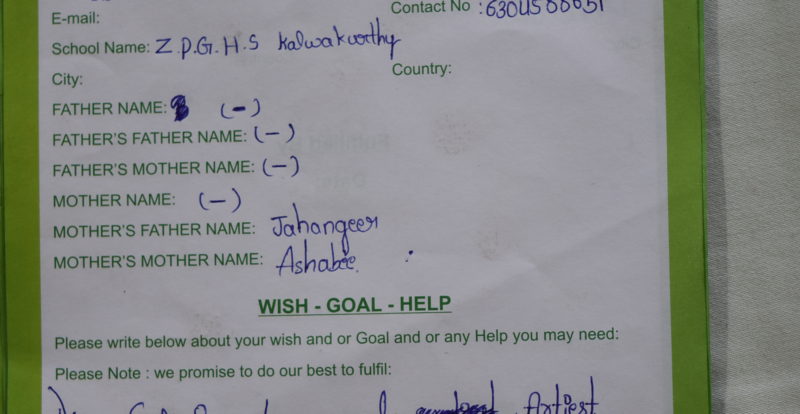 E-mail:
Contact No :
School Name: Z.P.G.H.S Kalwakurthy
City:
Country:
FATHER NAME: (-)
FATHER'S FATHER NAME: (-)
FATHER'S MOTHER NAME: (-)
MOTHER NAME: (-)
MOTHER'S FATHER NAME: Jahangeer
MOTHER'S MOTHER NAME: Ashabee.
WISH - GOAL - HELP
Please write below about your wish and or Goal and or any Help you may need:
Please Note : we promise to do our best to fulfil:
Artiest